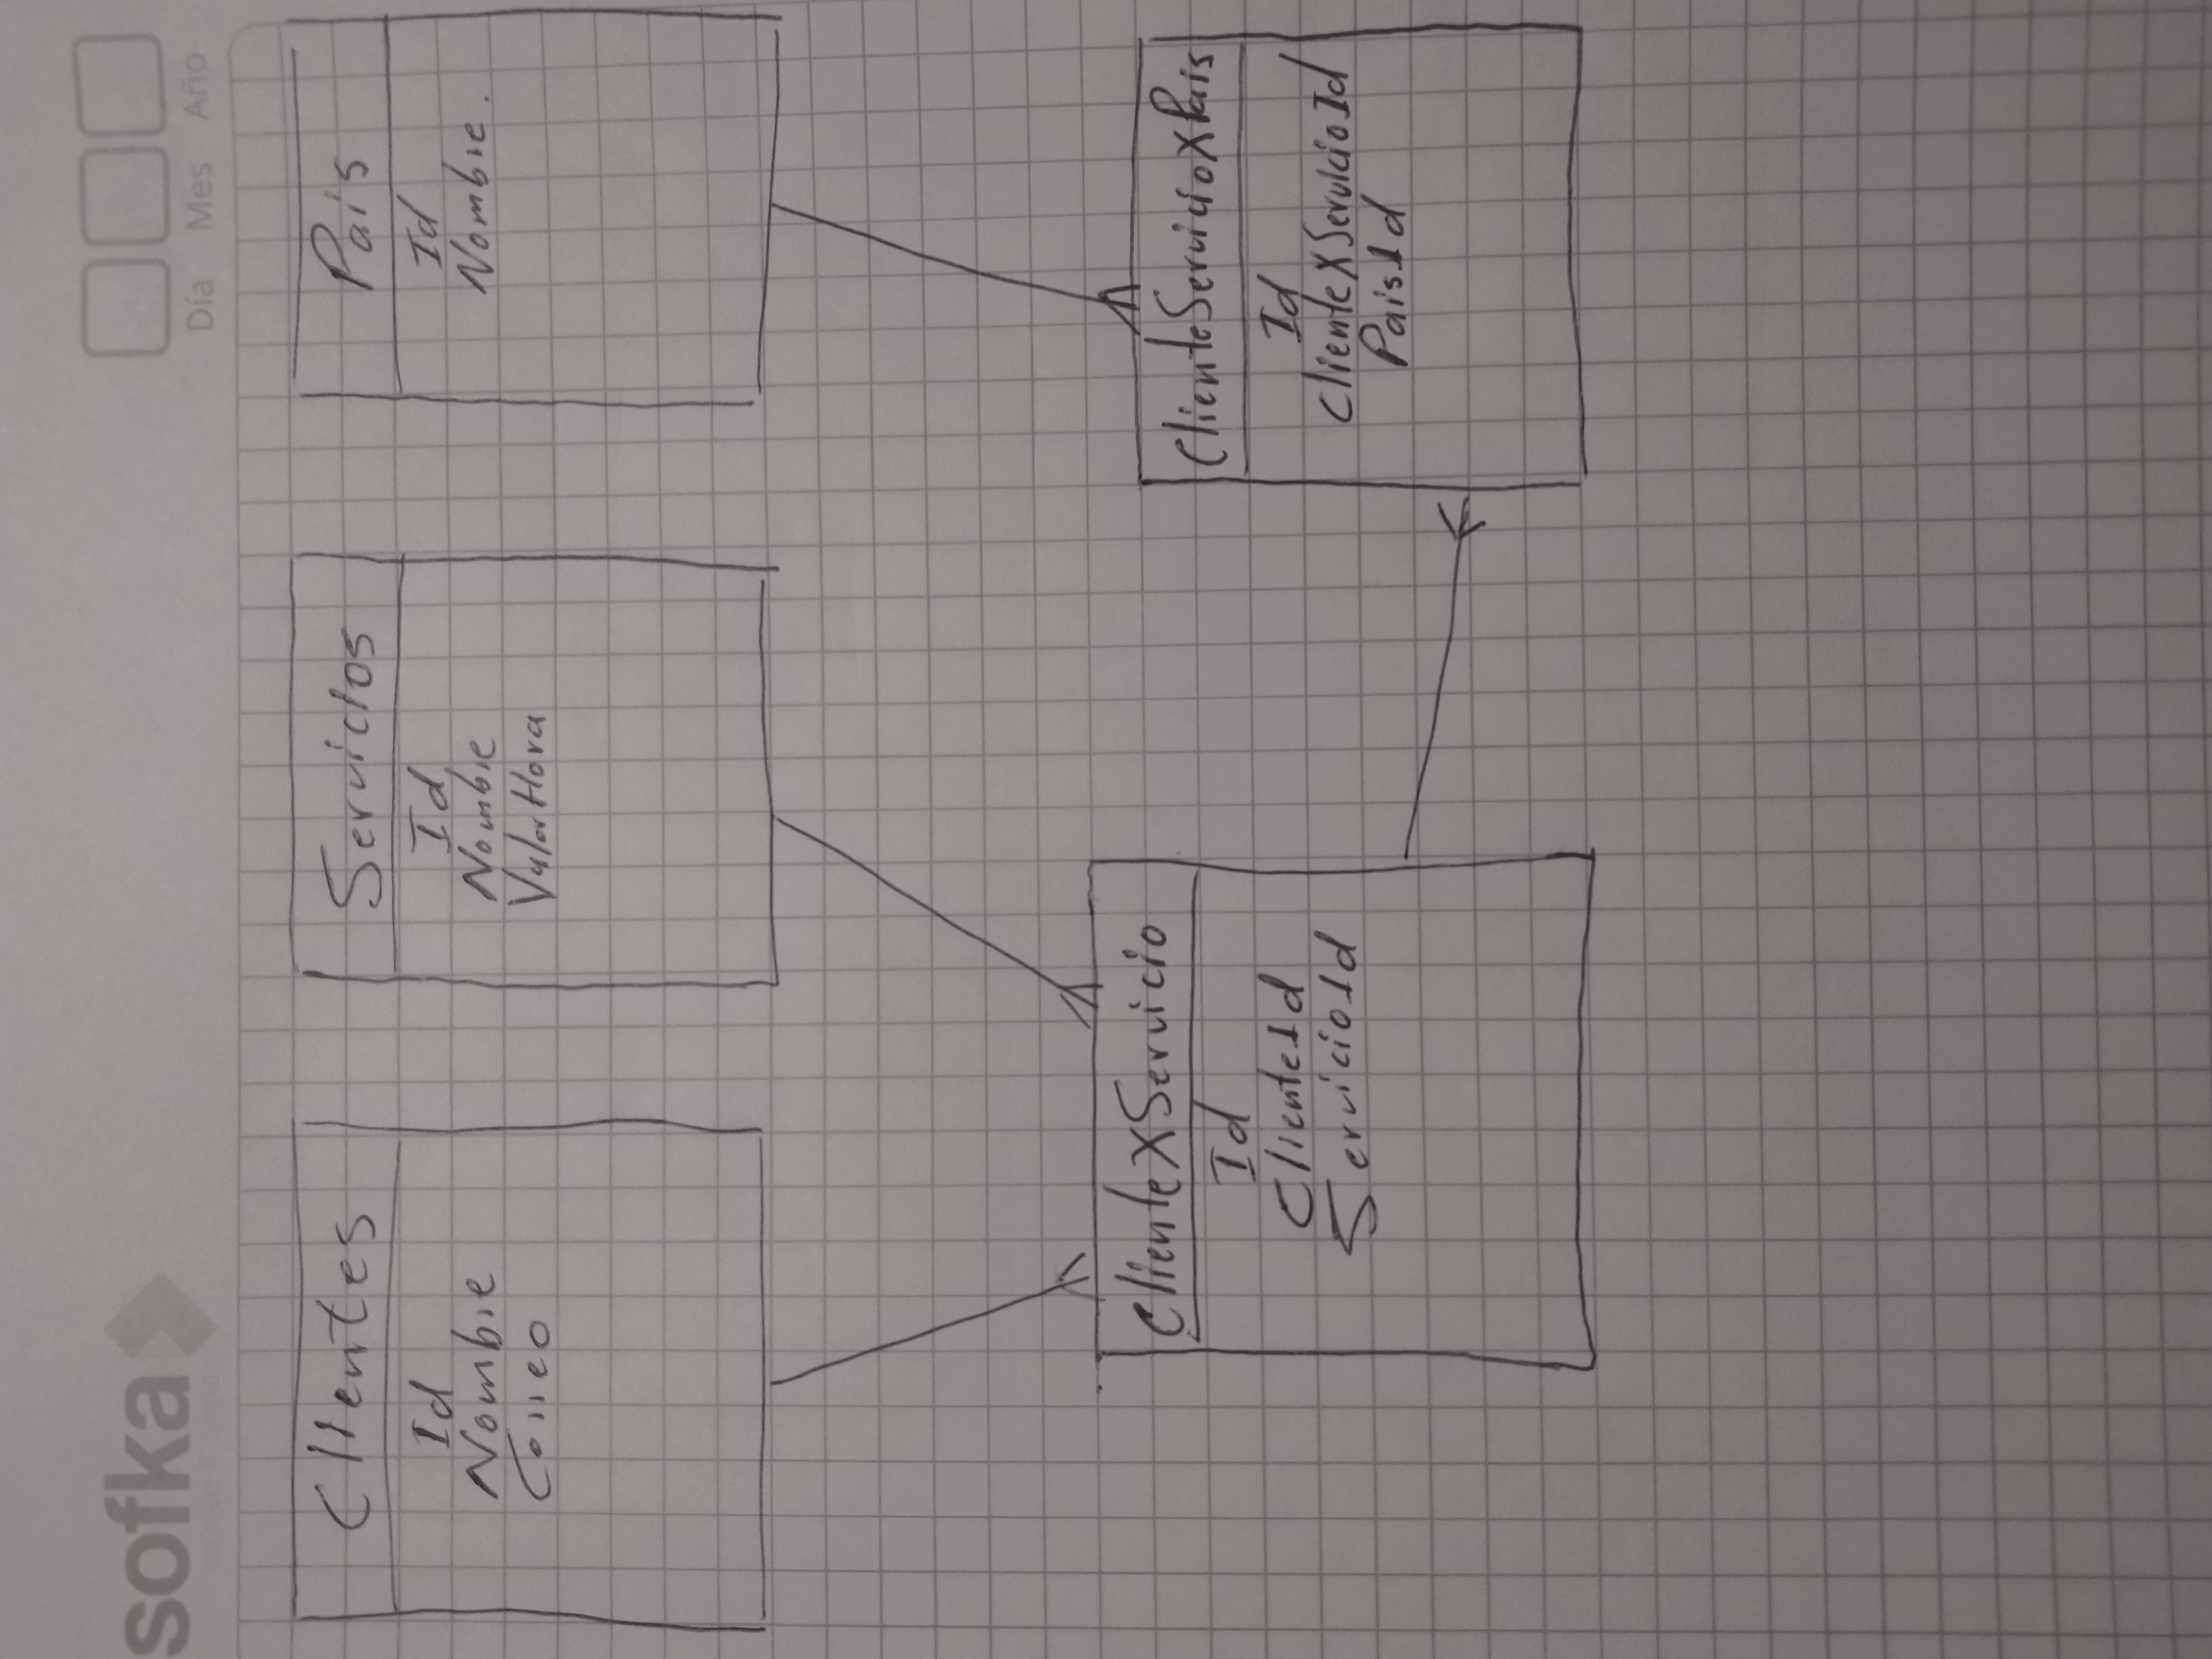 sofka
Día Mes Año
Clientes
Id
Nombre
Correo
Servicios
Id
Nombre
ValorHora
Pais
Id
Nombre.
ClienteXServicio
Id
ClienteId
ServicioId
ClienteServicioXPais
Id
ClienteXServicioId
PaisId